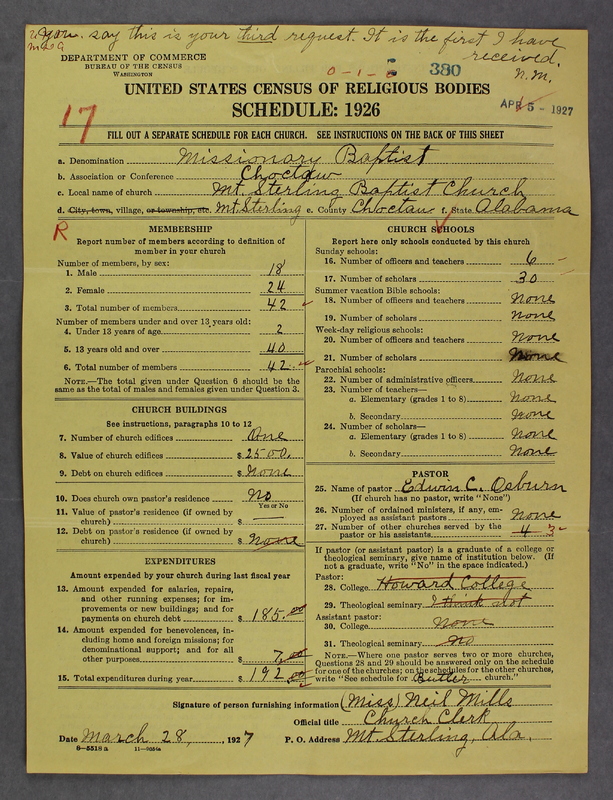 You say this is your third request. It is the first I have
received.
N.M.
DEPARTMENT OF COMMERCE
BUREAU OF THE CENSUS
WASHINGTON
0-1-6
380
UNITED STATES CENSUS OF RELIGIOUS BODIES
SCHEDULE: 1926
APR 5 - 1927
17
FILL OUT A SEPARATE SCHEDULE FOR EACH CHURCH. SEE INSTRUCTIONS ON THE BACK OF THIS SHEET
a. Denomination Missionary Baptist
b. Association or Conference Choctaw
c. Local name of church Mt. Sterling Baptist Church
d. City, town, village, or township, etc. Mt. Sterling e. County Choctaw f. State Alabama
R
MEMBERSHIP
Report number of members according to definition of
member in your church
Number of members, by sex:
1. Male 18
2. Female 24
3. Total number of members 42
Number of members under and over 13 years old:
4. Under 13 years of age 2
5. 13 years old and over 40
6. Total number of members 42
NOTE.—The total given under Question 6 should be the
same as the total of males and females given under Question 3.
CHURCH BUILDINGS
See instructions, paragraphs 10 to 12
7. Number of church edifices One
8. Value of church edifices $2500.
9. Debt on church edifices $None
10. Does church own pastor's residence No
Yes or No
11. Value of pastor's residence (if owned by
church) $ —
12. Debt on pastor's residence (if owned by
church) $None
EXPENDITURES
Amount expended by your church during last fiscal year
13. Amount expended for salaries, repairs,
and other running expenses; for im-
provements or new buildings; and for
payments on church debt $185.00
14. Amount expended for benevolences, in-
cluding home and foreign missions; for
denominational support; and for all
other purposes $7.00
15. Total expenditures during year $192.00
CHURCH SCHOOLS
Report here only schools conducted by this church
Sunday schools:
16. Number of officers and teachers 6
17. Number of scholars 30
Summer vacation Bible schools:
18. Number of officers and teachers None
19. Number of scholars None
Week-day religious schools:
20. Number of officers and teachers None
21. Number of scholars None
Parochial schools:
22. Number of administrative officers None
23. Number of teachers—
a. Elementary (grades 1 to 8) None
b. Secondary None
24. Number of scholars—
a. Elementary (grades 1 to 8) None
b. Secondary None
PASTOR
25. Name of pastor Edwin C. Osburn
(If church has no pastor, write "None")
26. Number of ordained ministers, if any, em-
ployed as assistant pastors None
27. Number of other churches served by the
pastor or his assistants 4 3
If pastor (or assistant pastor) is a graduate of a college or
theological seminary, give name of institution below. (If
not a graduate, write "No" in the space indicated.)
Pastor:
28. College Howard College
29. Theological seminary I think not
Assistant pastor:
30. College None
31. Theological seminary No
NOTE.—Where one pastor serves two or more churches,
Questions 28 and 29 should be answered only on the schedule
for one of the churches; on the schedules for the other churches,
write "See schedule for Butler church."
Signature of person furnishing information (Miss) Neil Mills
Official title Church Clerk
Date March 28, 1927 P. O. Address Mt. Sterling, Ala.
8—5518 a 11—9054a